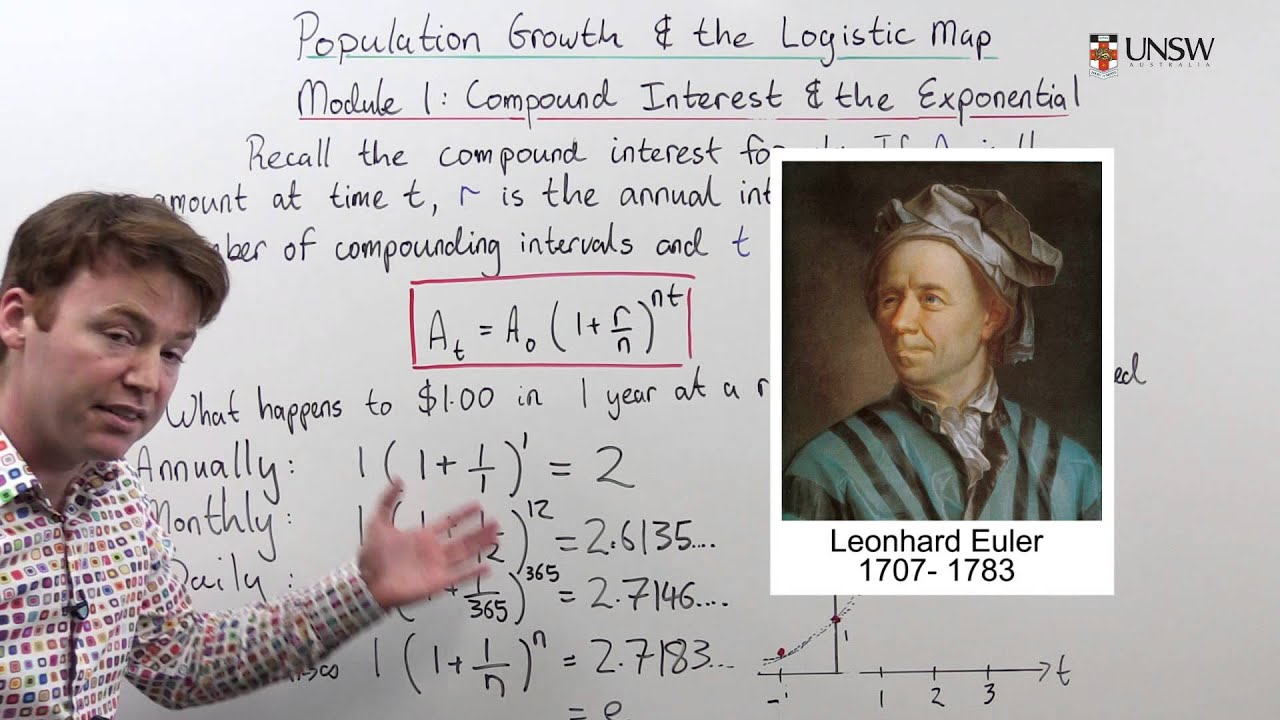 Population Growth & the Logistic Map
UNSW
AUSTRALIA
Module 1: Compound Interest & the Exponential
Recall the compound interest
amount at time t, r is the annual
of compounding intervals and t
A_t = A_0 (1 + r/n)^nt
What happens to $1.00 in 1 year at a
Annually: 1 (1 + 1/1)^1 = 2
Monthly: 1 (1 + 1/12)^12 = 2.6135....
Daily: (1 + 1/365)^365 = 2.7146....
1 (1 + 1/n)^n = 2.7183...
= e
Leonhard Euler
1707- 1783
1
-1 1 2 3 t